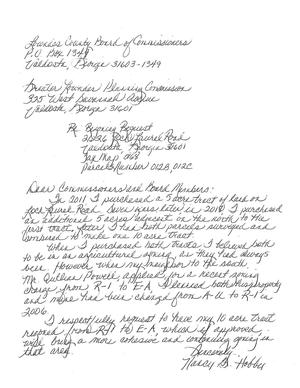 Lowndes County Board of Commissioners
P.O. Box 1349
Valdosta, Georgia 31603-1349
Greater Lowndes Planning Commission
325 West Savannah Avenue
Valdosta, Georgia 31601
Re: Rezoning Request
Rock Laurel Road
Valdosta, Georgia 31601
Tax Map
Parcel Number 012B, 012C
Dear Commissioners and Board Members:
In 2011 I purchased a 5 acre tract of land on
Road. Seven years later in 2018, I purchased
an additional 5 acres adjacent on the north to the
first tract. Later I had both parcels surveyed and
combined to make one 10 acre tract.
When I purchased both tracts, I believed both
to be in an agricultural zoning, as they had always
been. However, when my neighbor to the south,
Mr. Powell, applied for a recent zoning
change from R-1 to E-A, I learned both his property
and mine had been changed from A-U to R-1 in
2006.
I respectfully request to have my 10 acre tract
rezoned from R-1 to E-A, which if approved
will bring a more cohesive and conforming zoning in
that area.
Sincerely,
Nancy G. Hobby